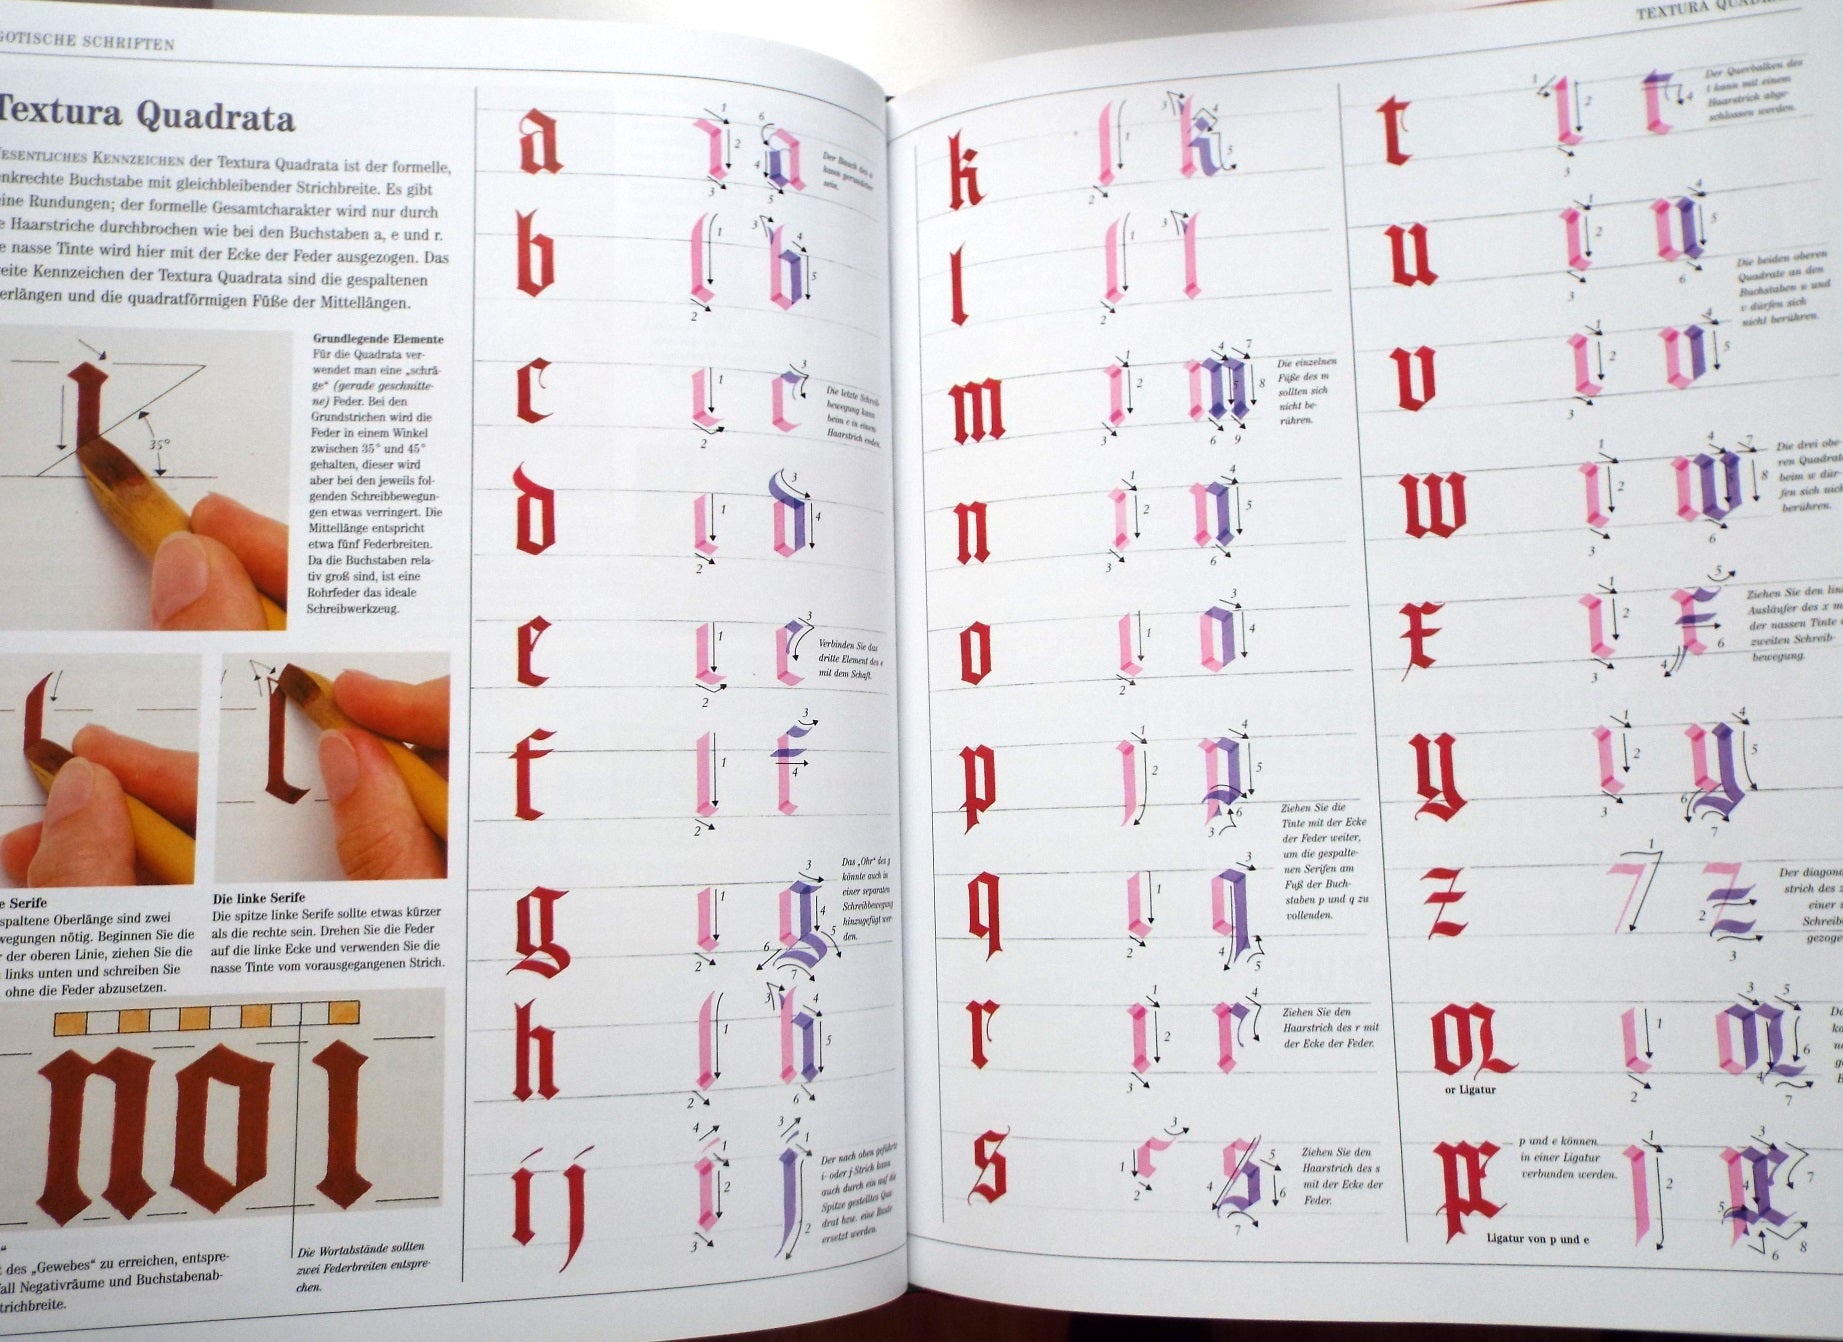 GOTISCHE SCHRIFTEN
Textura Quadrata
ESENTLICHES KENNZEICHEN der Textura Quadrata ist der formelle,
nkrechte Buchstabe mit gleichbleibender Strichbreite. Es gibt
ine Rundungen; der formelle Gesamtcharakter wird nur durch
e Haarstriche durchbrochen wie bei den Buchstaben a, e und r.
e nasse Tinte wird hier mit der Ecke der Feder ausgezogen. Das
eite Kennzeichen der Textura Quadrata sind die gespaltenen
erlängen und die quadratförmigen Füße der Mittellängen.
35°
Grundlegende Elemente
Für die Quadrata ver-
wendet man eine „schrä-
ge“ (gerade geschnitte-
ne) Feder. Bei den
Grundstrichen wird die
Feder in einem Winkel
zwischen 35° und 45°
gehalten, dieser wird
aber bei den jeweils fol-
genden Schreibbewegun-
gen etwas verringert. Die
Mittellänge entspricht
etwa fünf Federbreiten.
Da die Buchstaben rela-
tiv groß sind, ist eine
Rohrfeder das ideale
Schreibwerkzeug.
e Serife
spaltene Oberlänge sind zwei
wegungen nötig. Beginnen Sie die
der oberen Linie, ziehen Sie die
links unten und schreiben Sie
ohne die Feder abzusetzen.
Die linke Serife
Die spitze linke Serife sollte etwas kürzer
als die rechte sein. Drehen Sie die Feder
auf die linke Ecke und verwenden Sie die
nasse Tinte vom vorausgegangenen Strich.
noi
des „Gewebes“ zu erreichen, entspre-
all Negativräume und Buchstabenab-
trichbreite.
Die Wortabstände sollten
zwei Federbreiten entspre-
chen.
a 1 2 3 4 5 6
Der Bauch des a
kann gerundeter
sein.
b 1 2 3 4 5
c 1 2 3
Die letzte Schreib-
bewegung kann
beim c in einem
Haarstrich enden.
d 1 2 3 4
e 1 2 3
Verbinden Sie das
dritte Element des e
mit dem Schaft.
f 1 2 3 4
g 1 2 3 4 5 6 7
Das „Ohr“ des g
könnte auch in
einer separaten
Schreibbewegung
hinzugefügt wer-
den.
h 1 2 3 4 5 6
i j 1 2 3 4 1 2 3
Der nach oben geführte
i- oder j-Strich kann
auch durch ein auf die
Spitze gestelltes Qua-
drat bzw. eine Raute
ersetzt werden.
TEXTURA
k 1 2 3 4 5
l 1 2 3
m 1 2 3 4 5 6 7 8 9
Die einzelnen
Füße des m
sollten sich
nicht be-
rühren.
n 1 2 3 4 5 6
o 1 2 3 4
p 1 2 3 4 5 6
Ziehen Sie die
Tinte mit der Ecke
der Feder weiter,
um die gespalte-
nen Serifen am
Fuß der Buch-
staben p und q zu
vollenden.
q 1 2 3 4 5
r 1 2 3 4
Ziehen Sie den
Haarstrich des r mit
der Ecke der Feder.
s 1 2 3 4 5 6 7
Ziehen Sie den
Haarstrich des s
mit der Ecke der
Feder.
t 1 2 3 4
Der Querbalken des
t kann mit einem
Haarstrich abge-
schlossen werden.
u 1 2 3 4 5 6
Die beiden oberen
Quadrate an den
Buchstaben u und
v dürfen sich
nicht berühren.
v 1 2 3 4 5
w 1 2 3 4 6 7 8
Die drei obe-
ren Quadrate
beim w dür-
fen sich nicht
berühren.
x 1 2 3 4 5 6
Ziehen Sie den lin
Ausläufer des x m
der nassen Tinte
zweiten Schreib-
bewegung.
y 1 2 3 4 5 6 7
z 1 2 3
Der diagona
strich des z
einer
Schreib
gezoge
or 1 2 3 4 5 6 7
or Ligatur
pe 1 2 3 4 5 6 7 8
p und e können
in einer Ligatur
verbunden werden.
Ligatur von p und e